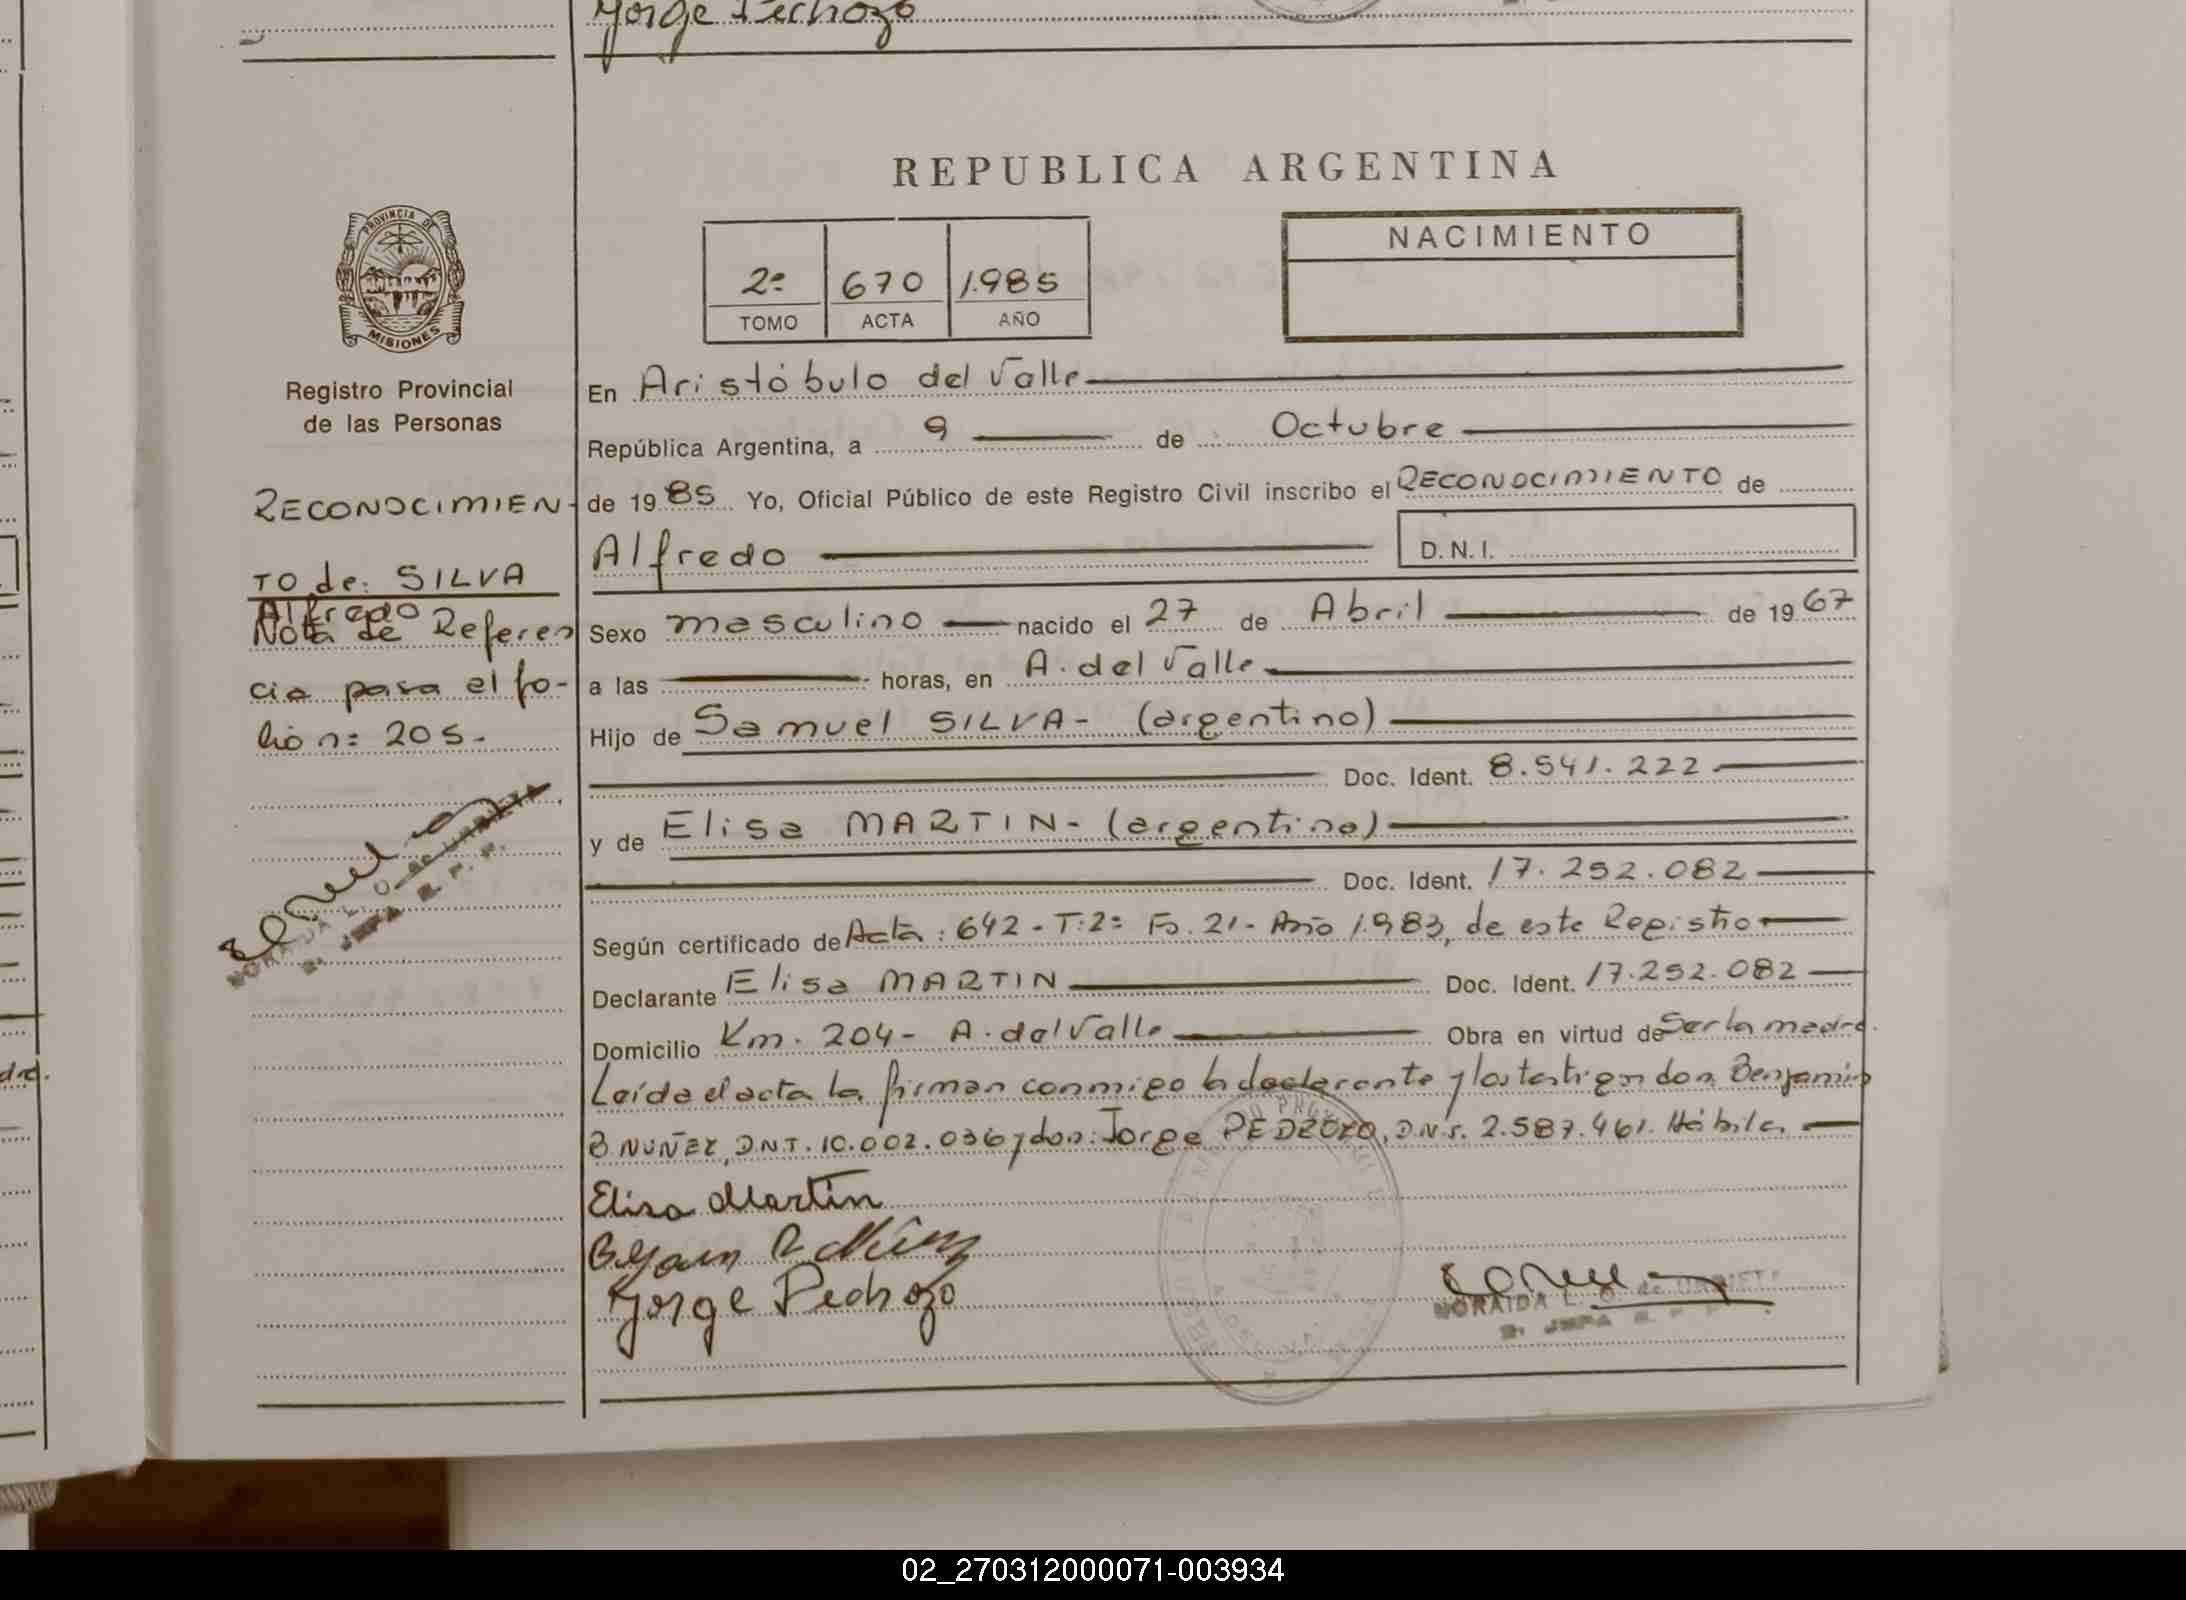 Jorge Pedrozo
REPUBLICA ARGENTINA
PROVINCIA DE
MISIONES
Registro Provincial
de las Personas
2º 670 1.985
TOMO ACTA AÑO
NACIMIENTO
En Aristóbulo del Valle
República Argentina, a 9 de Octubre
de 1985 Yo, Oficial Público de este Registro Civil inscribo el RECONOCIMIENTO de
Alfredo D.N.I.
Sexo masculino nacido el 27 de Abril de 1967
a las horas, en A. del Valle
Hijo de Samuel SILVA- (argentino)
Doc. Ident. 8.541.222
y de Elisa MARTIN- (argentina)
Doc. Ident. 17.252.082
Según certificado de Acta: 642- T:2º Fo. 21- Año 1.983, de este Registro
Declarante Elisa MARTIN Doc. Ident. 17.252.082
Domicilio Km. 204- A. del Valle Obra en virtud de Ser la madre.
Leída el acta la firman conmigo la declarante y los testigos don Benjamin
B. NUÑEZ, D.N.I. 10.002.036 y don: Jorge PEDROZO, D.N.I. 2.587.461. Hábiles
Elisa Martin
Jorge Pedrozo
NORAIDA L. O. de URRIETA
RECONOCIMIEN-
TO de: SILVA
Alfredo
Nota de Referen
cia para el fo-
lio n: 205.-
NORAIDA L. O. de URRIETA
02_270312000071-003934